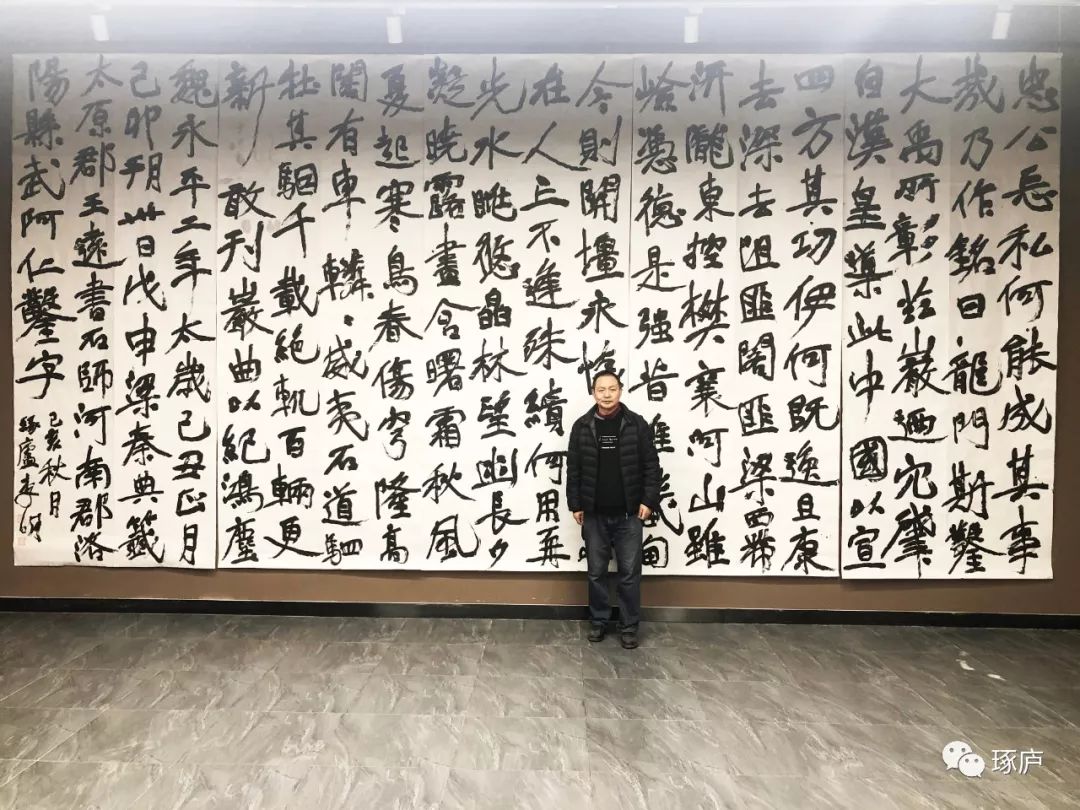 忠公忘私何能成其事
哉乃作銘曰龍門斯鑿
大禹所彰茲巖迺穴肇
自漢皇導此中國以宣
四方其功伊何既逸且康
去深去阻匪閣匪梁西帶
汧隴東控樊襄河山雖
嶮憑德是强昔惟畿甸
今則關壃永懷
在人亡不逢殊績何用再
光水眺悠皛林望幽長夕
凝曉露晝含曙霜秋風
夏起寒鳥春傷穹隆高
閣有車轔〻威夷石道駟
牡其駰千載絶軌百輛更
新敢刊巖曲以紀鴻塵
魏永平二年太歲己丑正月
己卯朔卅日戊申梁秦典籤
太原郡王遠書石師河南郡洛
陽縣武阿仁鑿字
己亥秋月
琢廬李
琢庐